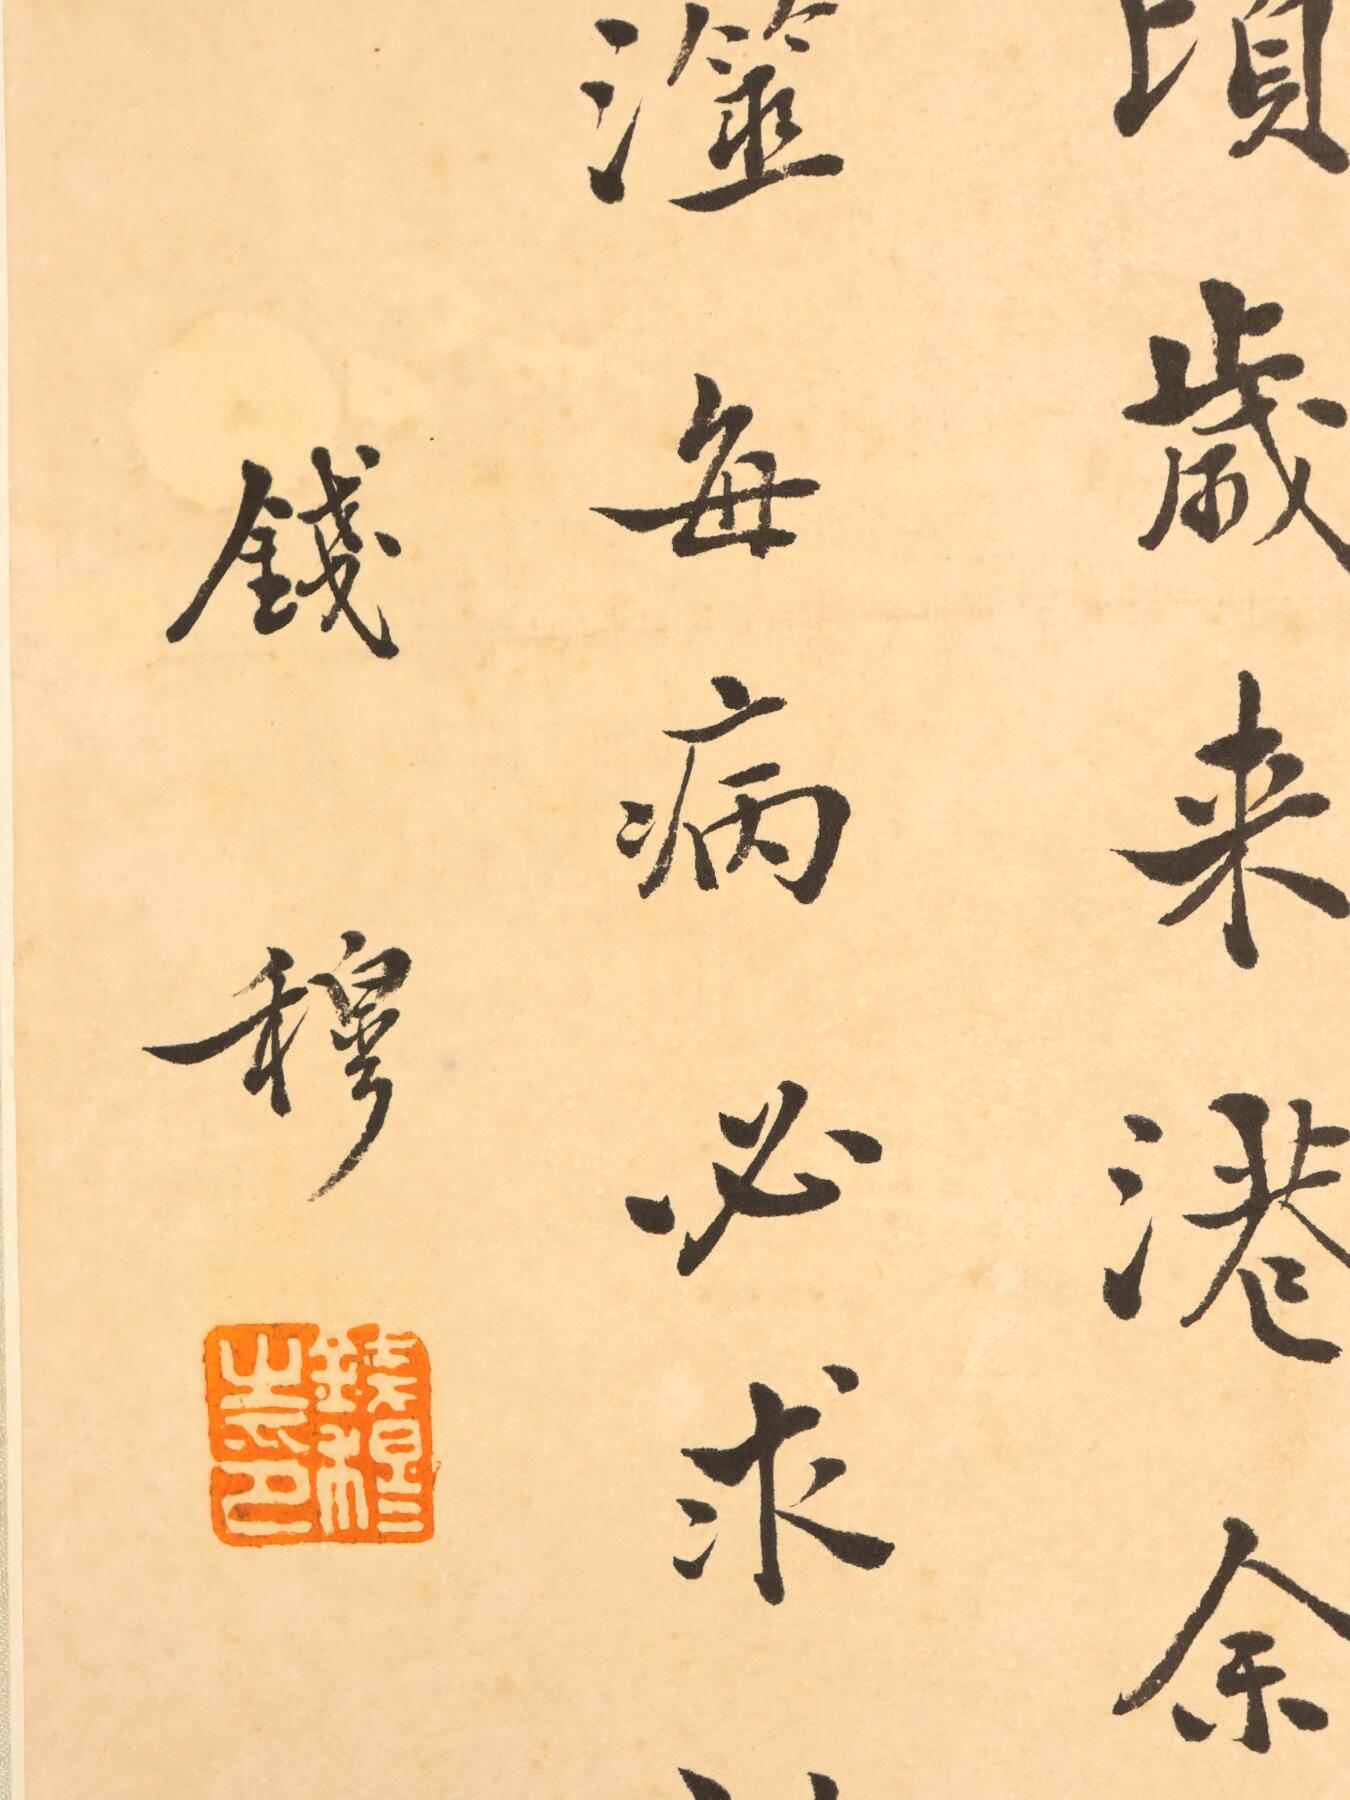 頃歲来港余
澨每病必求
錢穆
錢穆之印